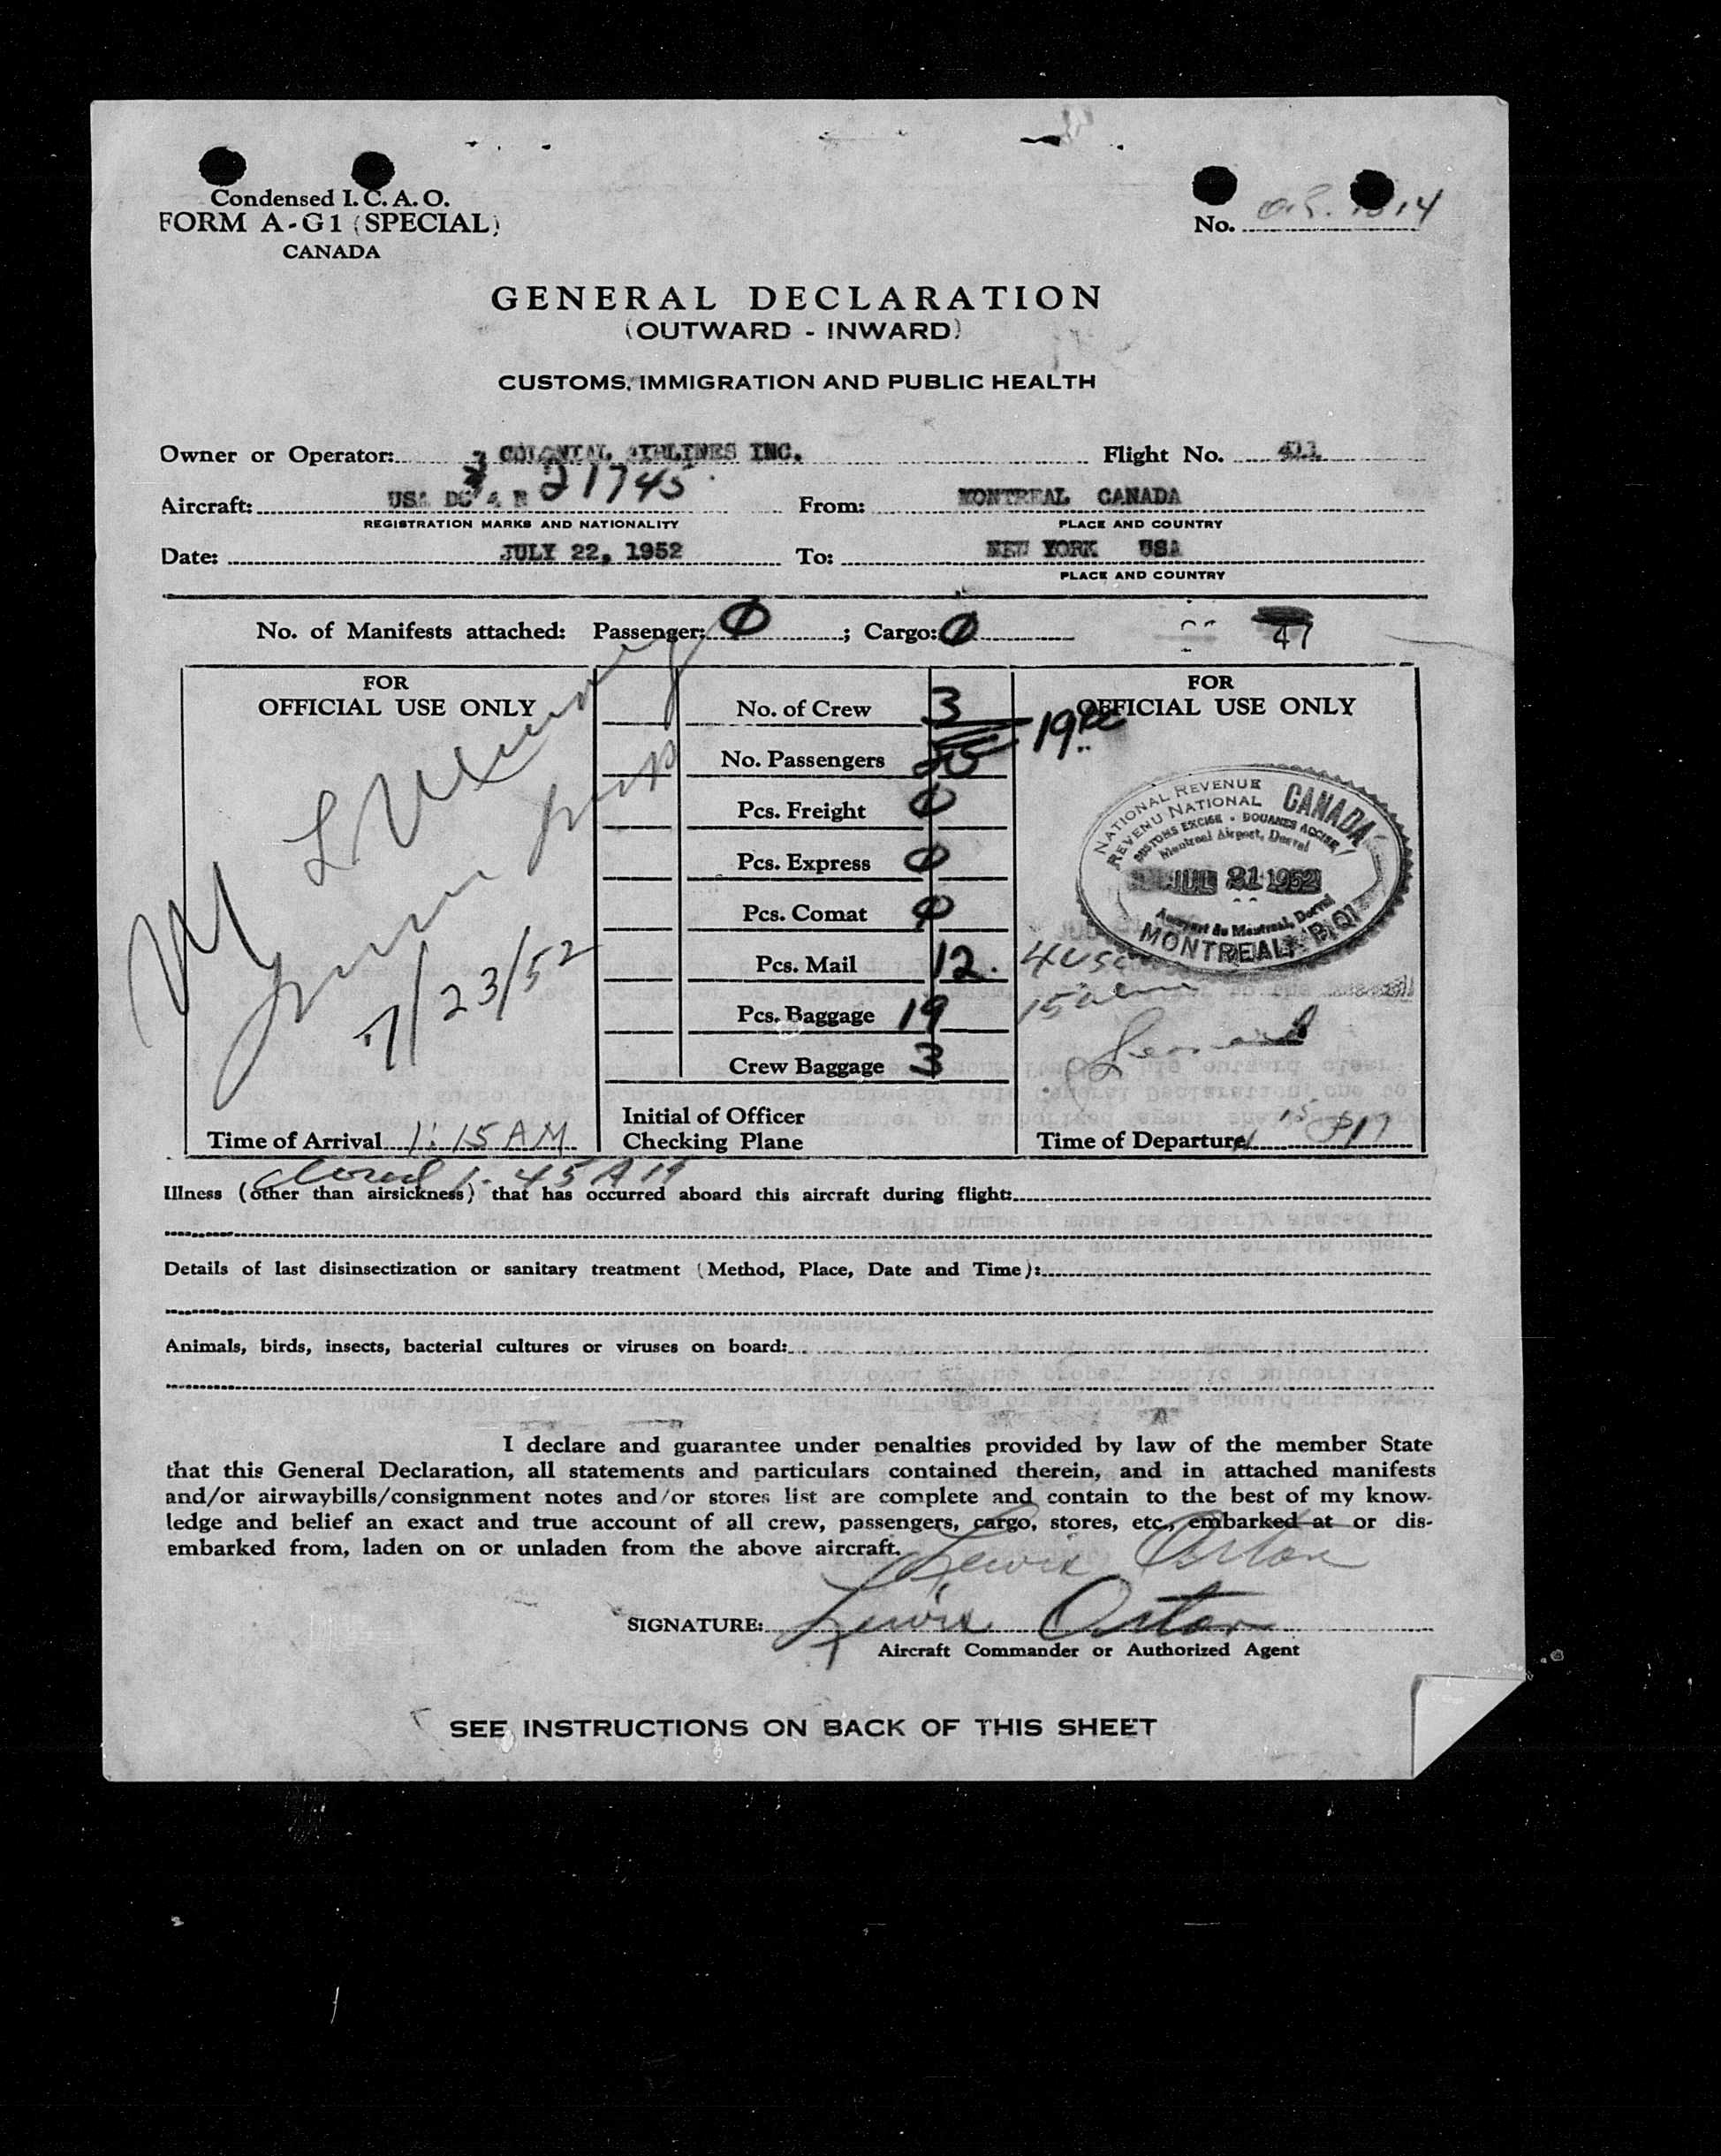 Condensed I.C.A.O.
FORM A-G1 (SPECIAL)
CANADA
No.
GENERAL DECLARATION
(OUTWARD - INWARD)
CUSTOMS, IMMIGRATION AND PUBLIC HEALTH
Owner or Operator: COLONIAL AIRLINES INC. Flight No. 411
Aircraft: USA DC 4 N 21745 From: MONTREAL CANADA
REGISTRATION MARKS AND NATIONALITY PLACE AND COUNTRY
Date: JULY 22, 1952 To: NEW YORK USA
PLACE AND COUNTRY
No. of Manifests attached: Passenger: 0 ; Cargo: 0 47
FOR
OFFICIAL USE ONLY
7/23/52
Time of Arrival 1:15 AM
closed 1:45 AM
No. of Crew 3
No. Passengers 19
Pcs. Freight 0
Pcs. Express 0
Pcs. Comat 0
Pcs. Mail 12.
Pcs. Baggage 19
Crew Baggage 3
Initial of Officer
Checking Plane
FOR
OFFICIAL USE ONLY
NATIONAL REVENUE
REVENU NATIONAL
CANADA
CUSTOMS EXCISE - DOUANES ACCISE
Montreal Airport, Dorval
JUL 21 1952
Aeroport de Montreal, Dorval
MONTREAL, P.Q.
Time of Departure
Illness (other than airsickness) that has occurred aboard this aircraft during flight:
Details of last disinsectization or sanitary treatment (Method, Place, Date and Time):
Animals, birds, insects, bacterial cultures or viruses on board:
I declare and guarantee under penalties provided by law of the member State
that this General Declaration, all statements and particulars contained therein, and in attached manifests
and/or airwaybills/consignment notes and/or stores list are complete and contain to the best of my know-
ledge and belief an exact and true account of all crew, passengers, cargo, stores, etc., embarked at or dis-
embarked from, laden on or unladen from the above aircraft.
SIGNATURE: Lewis
Aircraft Commander or Authorized Agent
SEE INSTRUCTIONS ON BACK OF THIS SHEET